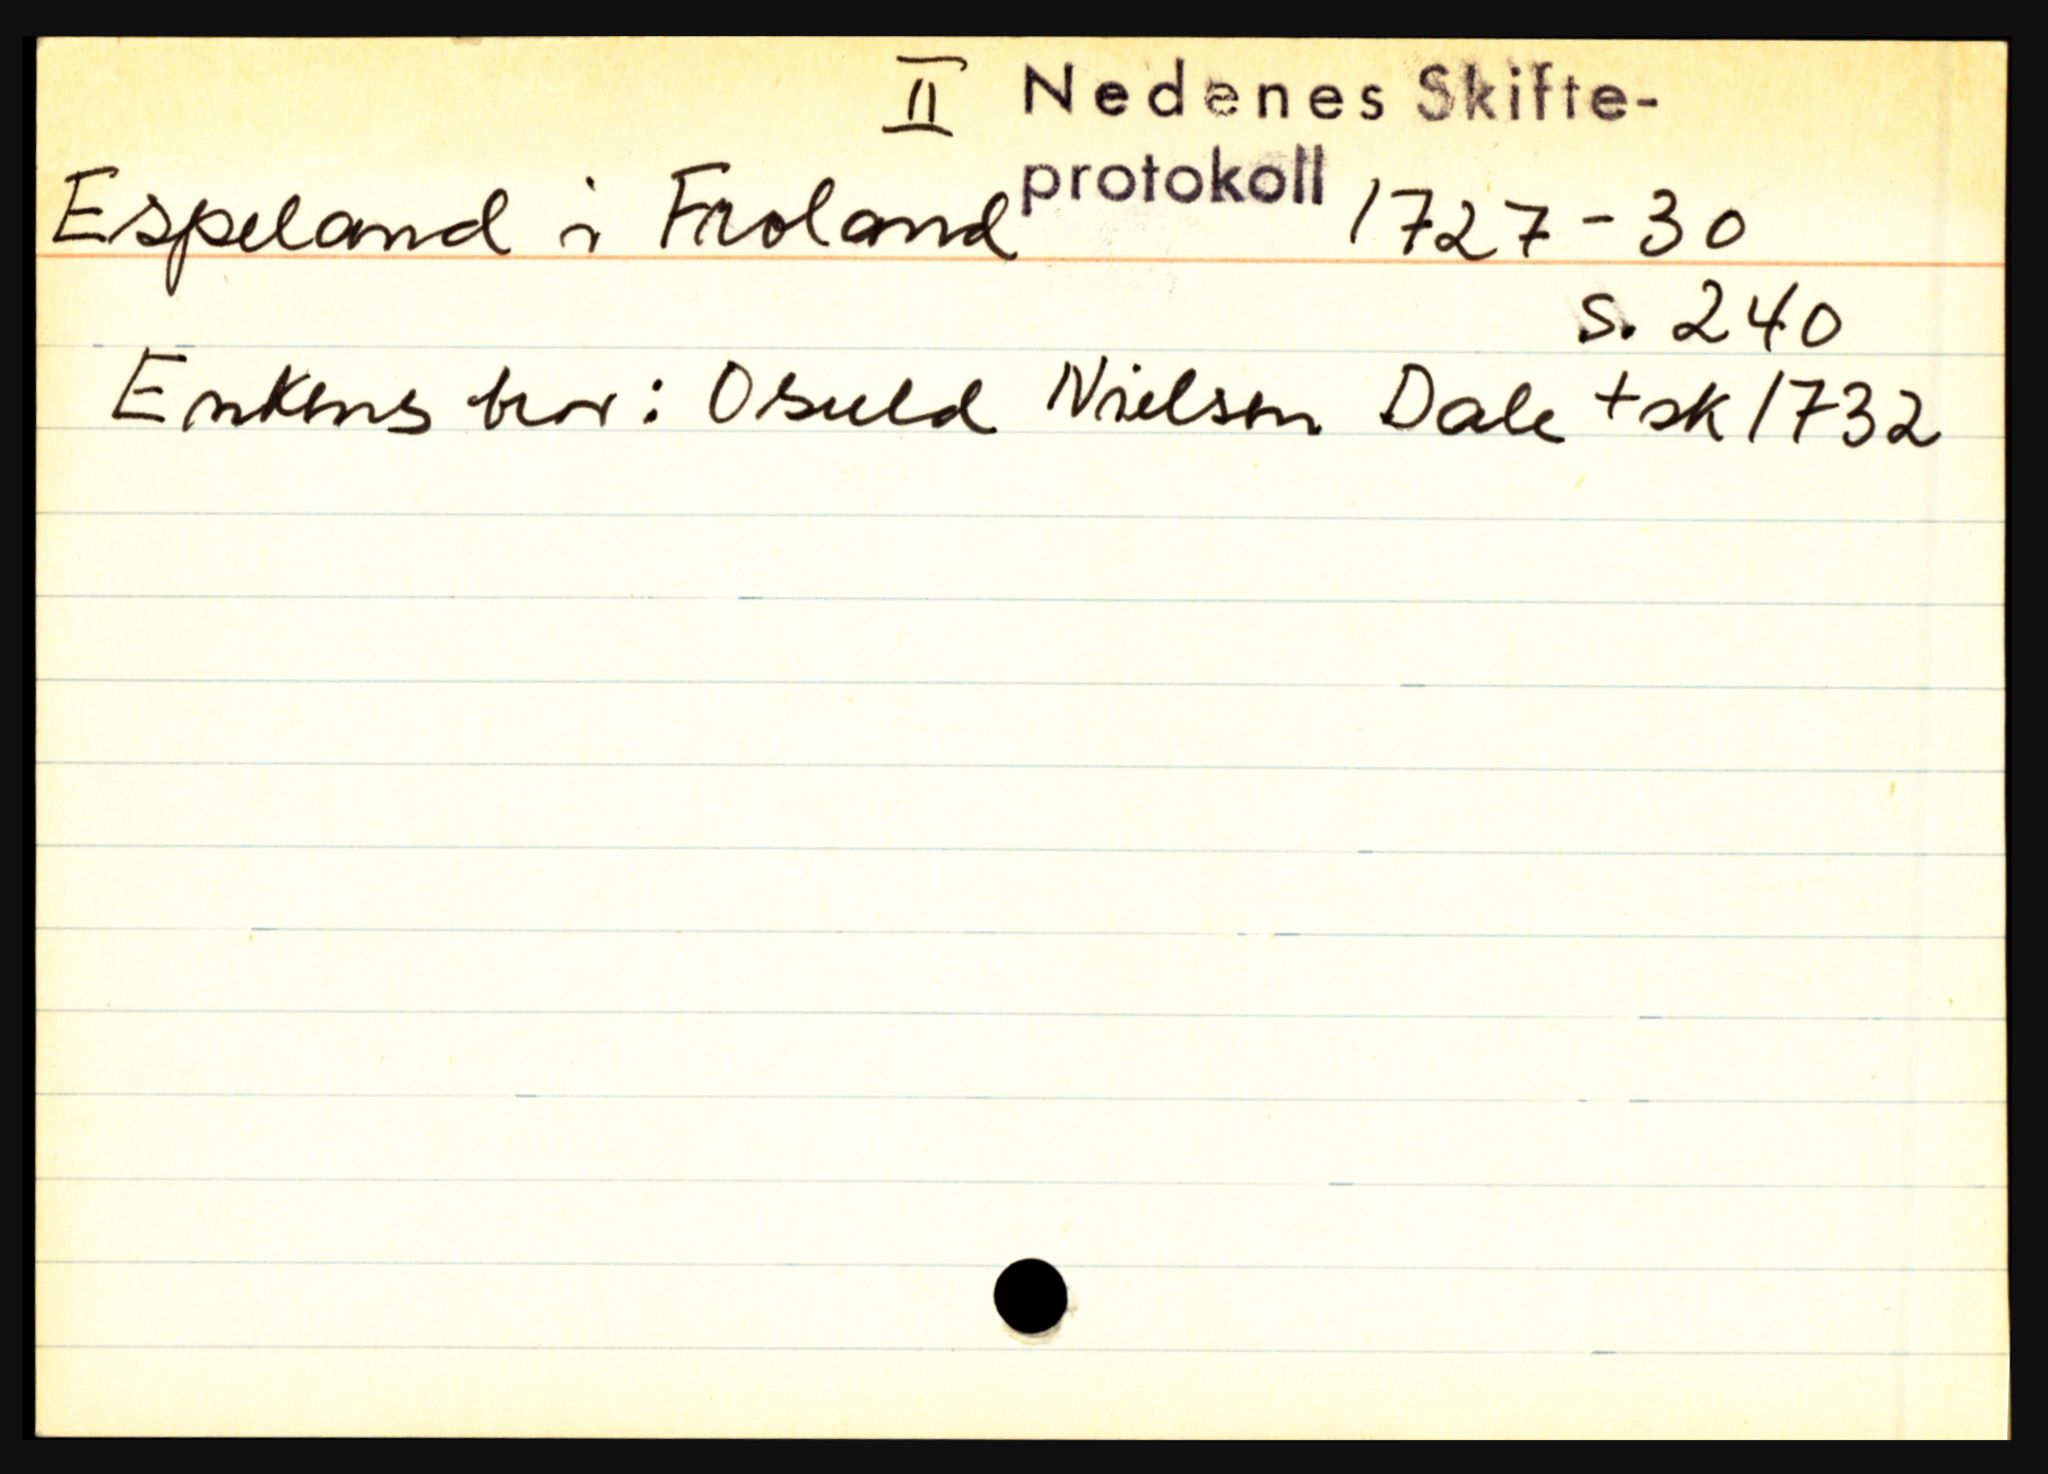 II Nedenes Skifte-
protokoll
Espeland i Froland 1727-30
s. 240
Enkens bror: Osuld Nielsen Dale + sk 1732